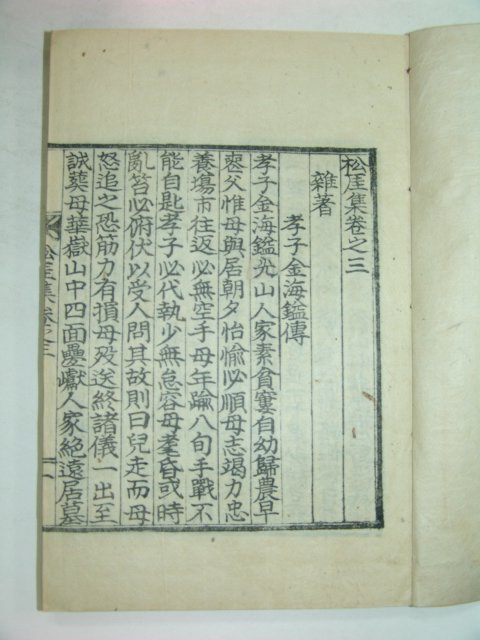 松厓集卷之三
雜著
孝子金海鎰傳
孝子金海鎰光山人家素貧窶自幼歸農早
喪父惟母與居朝夕怡愉必順母志竭力忠
養塲市往返必無空手母年踰八旬手戰不
能自匙孝子必代執少無怠容母耄昏或時
亂笞必俯伏以受人問其故則曰兒走而母
怒追之恐筋力有損母歿送終諸儀一出至
誠葬母華嶽山中四面疊巘人家絶遠居墓
松厓集 卷之三
一